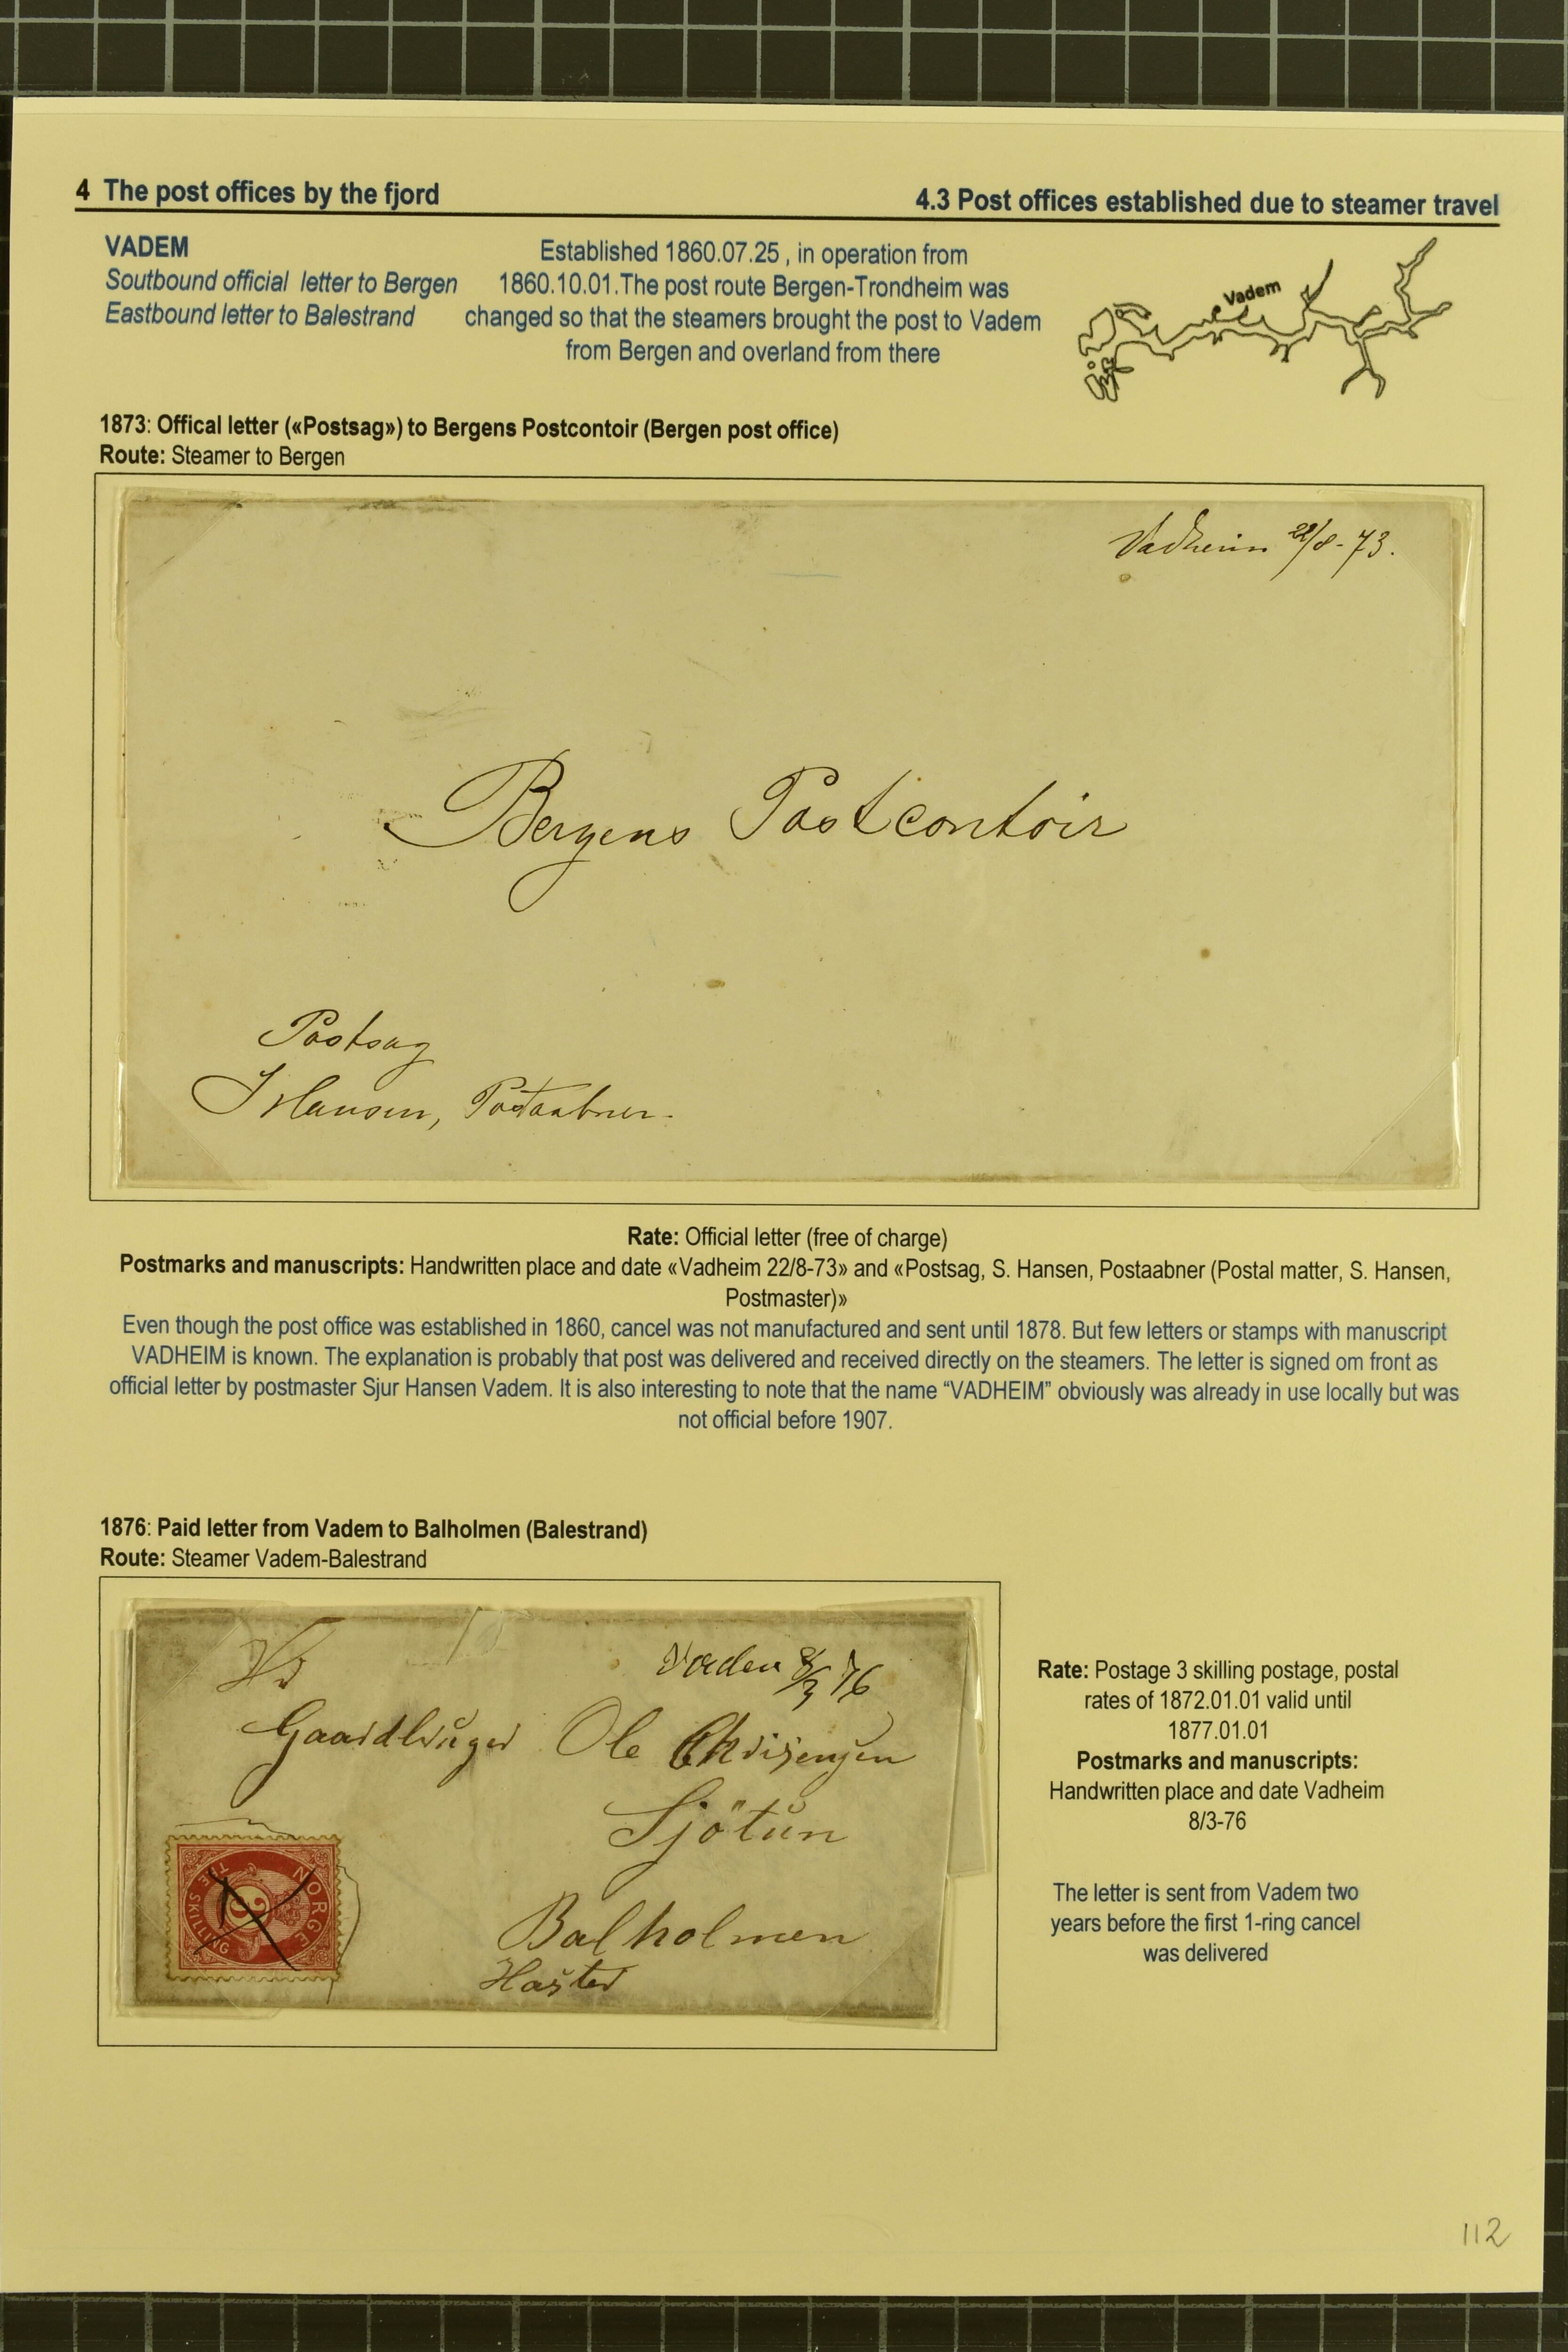 4 The post offices by the fjord
4.3 Post offices established due to steamer travel
VADEM
Soutbound official letter to Bergen
Eastbound letter to Balestrand
Established 1860.07.25 , in operation from
1860.10.01.The post route Bergen-Trondheim was
changed so that the steamers brought the post to Vadem
from Bergen and overland from there
Vadem
1873: Offical letter («Postsag») to Bergens Postcontoir (Bergen post office)
Route: Steamer to Bergen
Vadheim 22/8-73.
Bergens Postcontoir
Postsag
S Hansen, Postaabner.
Rate: Official letter (free of charge)
Postmarks and manuscripts: Handwritten place and date «Vadheim 22/8-73» and «Postsag, S. Hansen, Postaabner (Postal matter, S. Hansen,
Postmaster)»
Even though the post office was established in 1860, cancel was not manufactured and sent until 1878. But few letters or stamps with manuscript
VADHEIM is known. The explanation is probably that post was delivered and received directly on the steamers. The letter is signed om front as
official letter by postmaster Sjur Hansen Vadem. It is also interesting to note that the name “VADHEIM” obviously was already in use locally but was
not official before 1907.
1876: Paid letter from Vadem to Balholmen (Balestrand)
Route: Steamer Vadem-Balestrand
Vadem 8/3 76
Hr
Gaardbruger Ole
Sjötun
Balholmen
Haster
NORGE
TRE SKILLING
3
Rate: Postage 3 skilling postage, postal
rates of 1872.01.01 valid until
1877.01.01
Postmarks and manuscripts:
Handwritten place and date Vadheim
8/3-76
The letter is sent from Vadem two
years before the first 1-ring cancel
was delivered
112